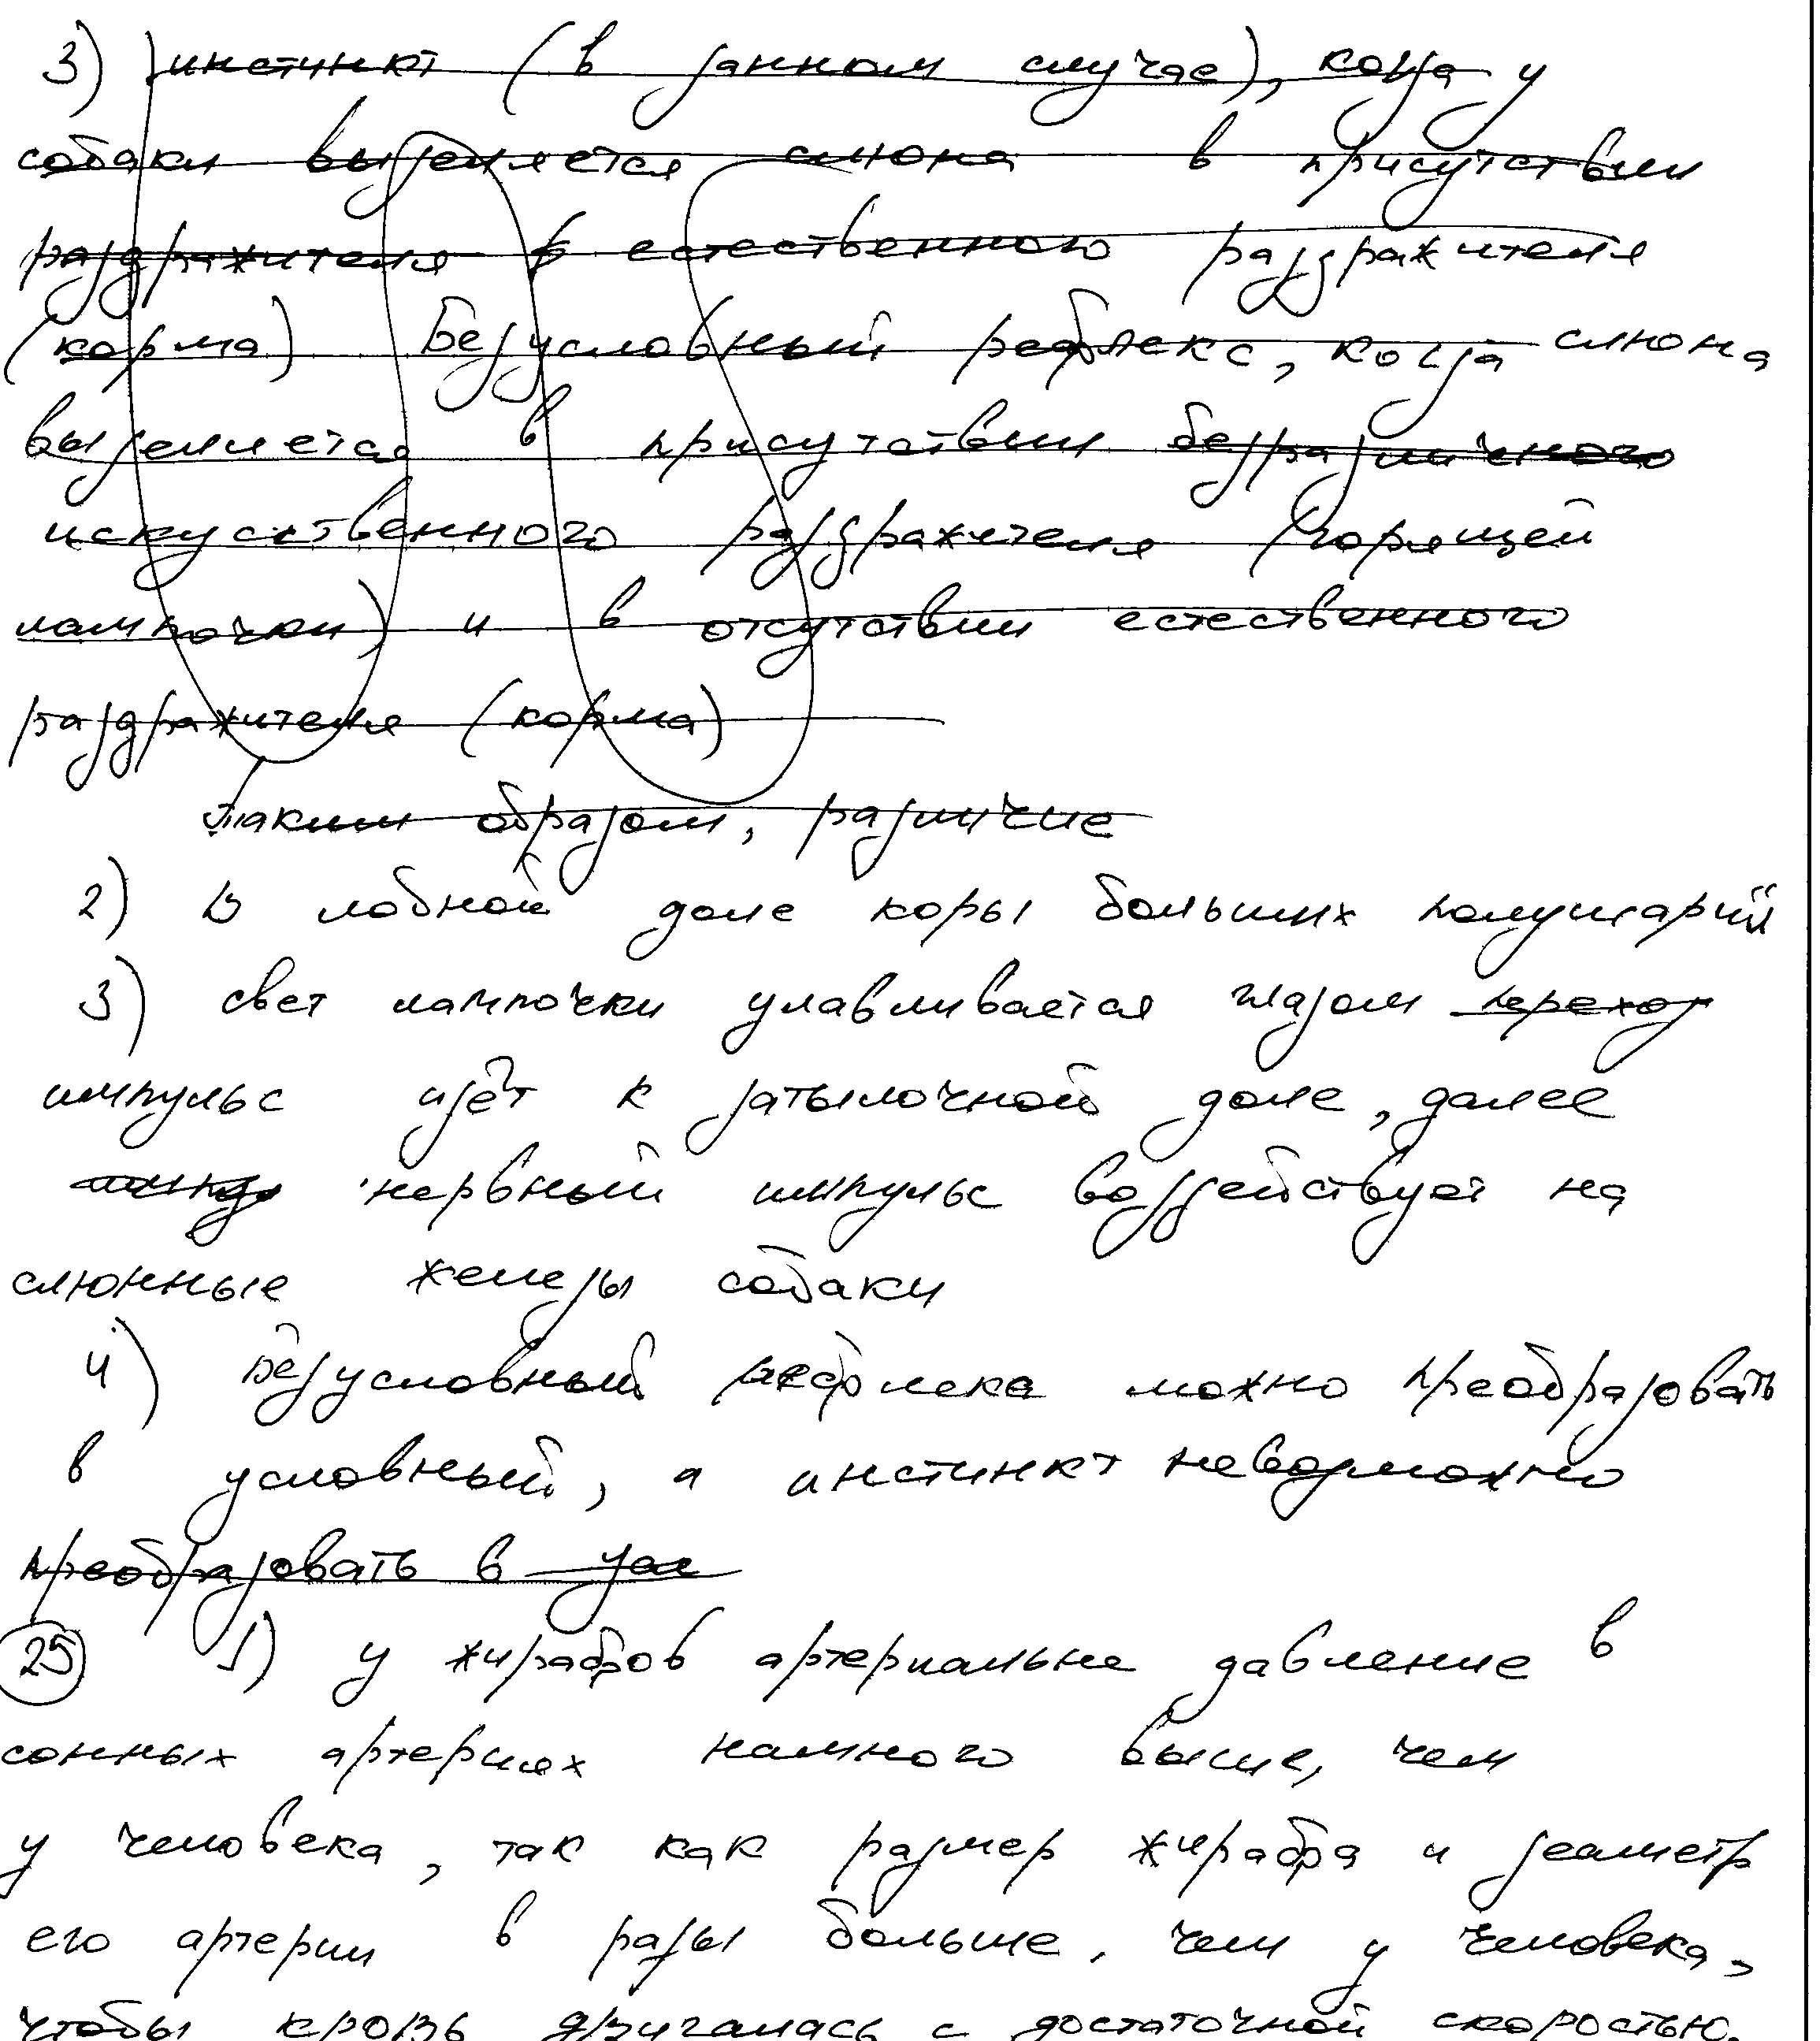 3) инстинкт (в данном случае), когда у
собаки выделяется слюна в присутствии
раздражителя в естественного раздражителя
(корма) Безусловный рефлекс, когда слюна
выделяется в присутствии безразличного
искуственного раздражителя (горящей
лампочки) и в отсутствии естественного
раздражителя (корма)
Таким образом, различие
2) В лобной доле коры больших полушарий
3) свет лампочки улавливается глазом переход
импульс идёт к затылочной доле, далее
нервный импульс воздействует на
слюнные железы собаки
4) Безусловный рефлекс можно преобразовать
в условный, а инстинкт невозможно
преобразовать в усл
25 1) у жирафов артериальне давление в
сонных артериях намного выше, чем
у человека, так как размер жирафа и деаметр
его артерии в разы больше, чем у человека,
чтобы кровь двигалась с достаточной скоростью.